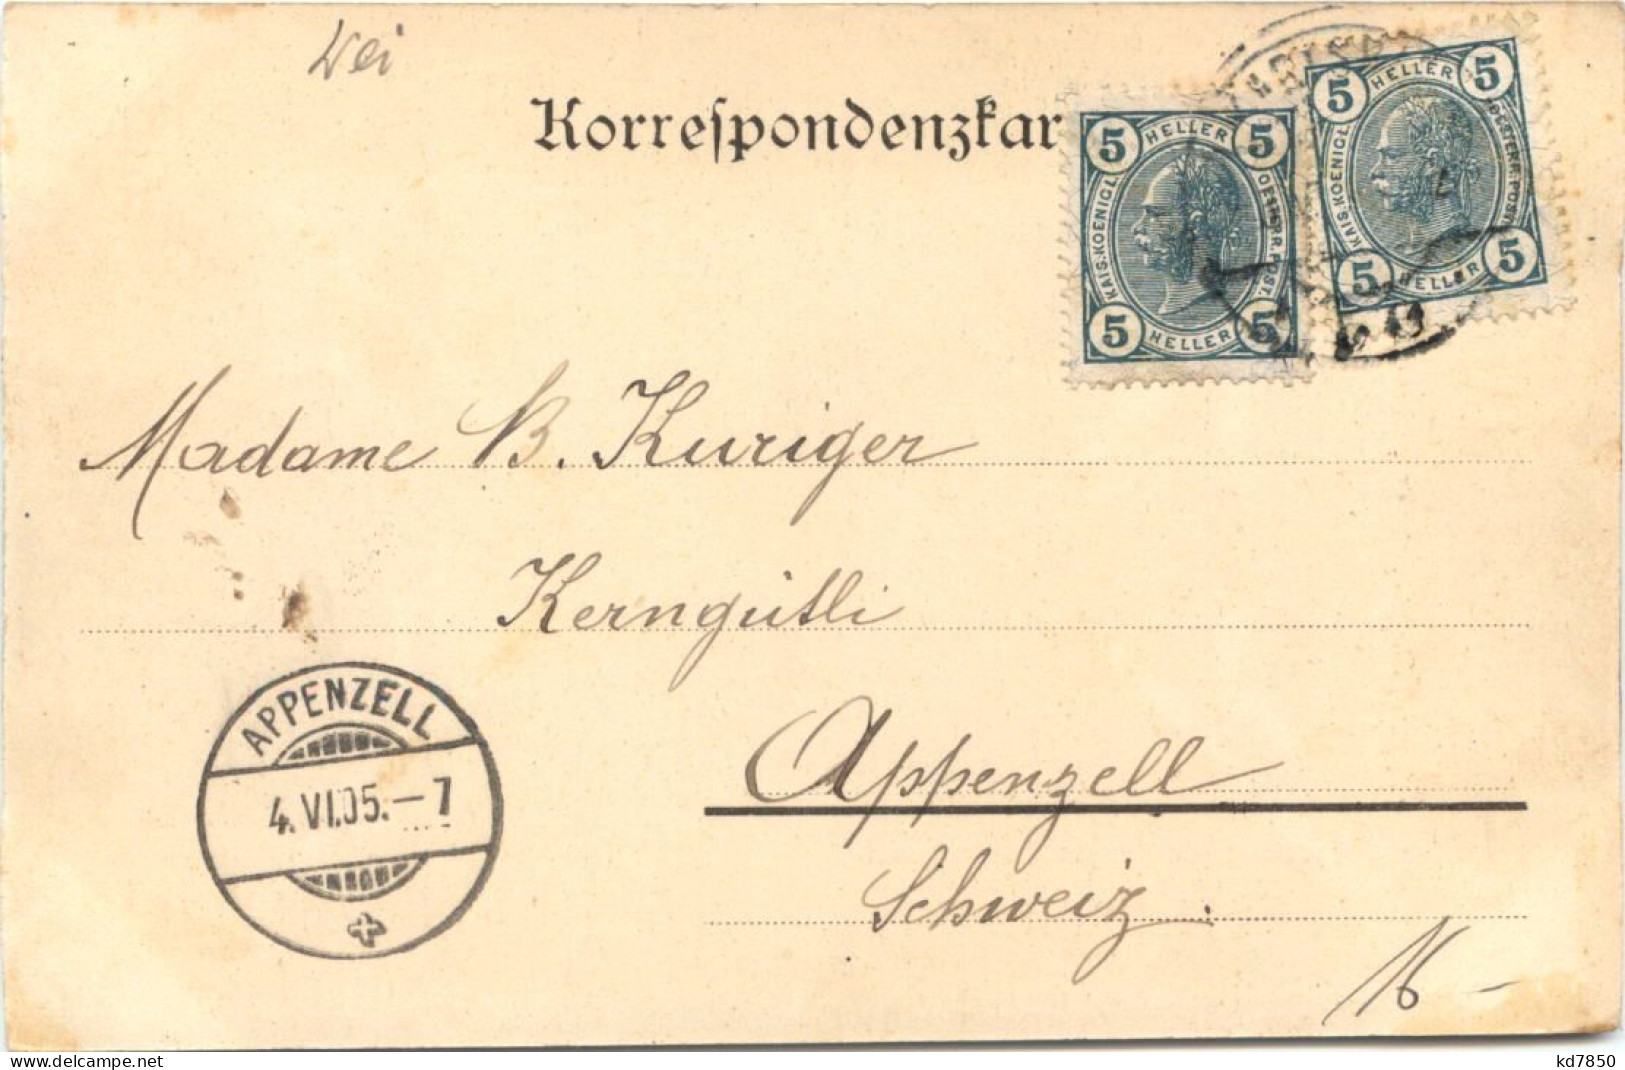 Korrespondenzkar
5 HELLER 5
KAIS. KOENIGL.
OESTERR. POST.
5 HELLER 5
5 HELLER 5
KAIS. KOENIGL.
OESTERR. POST.
5 HELLER 5
Madame B. Kuriger
Kerngütli
APPENZELL
4.VI.05.–7
Appenzell
Schweiz.
kd7850